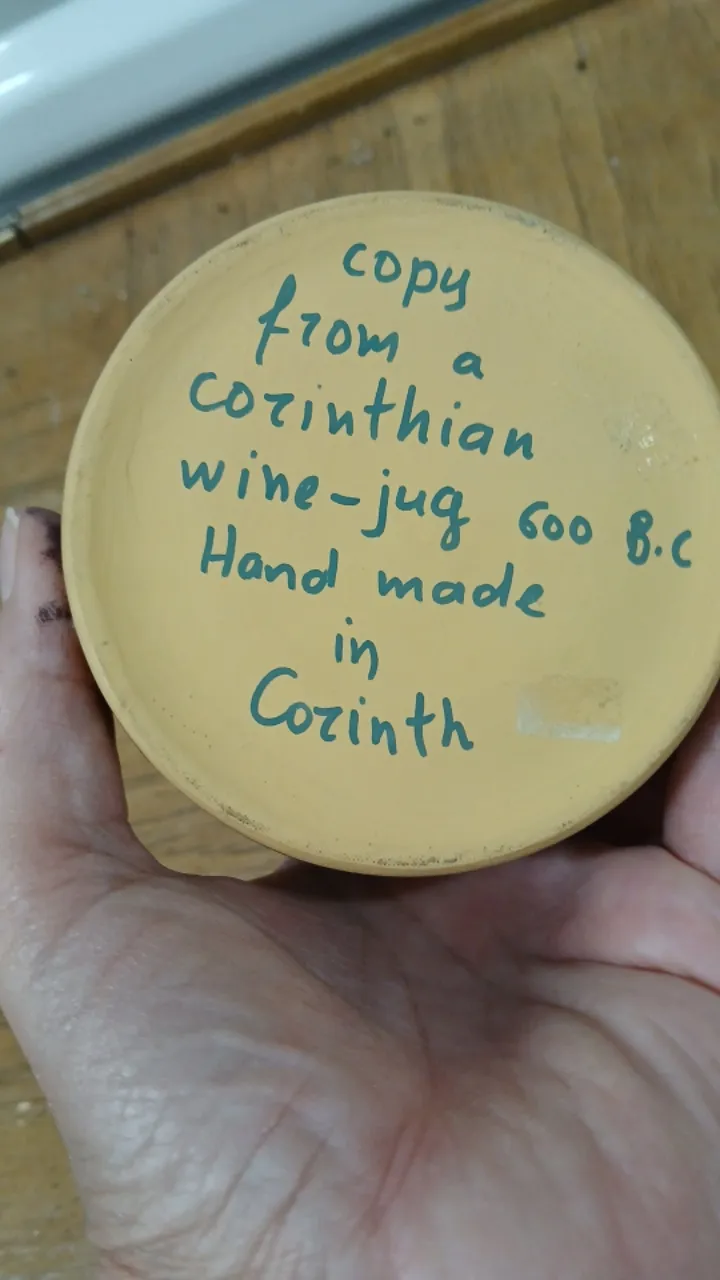 copy
from a
corinthian
wine-jug 600 B.C
Hand made
in
Corinth